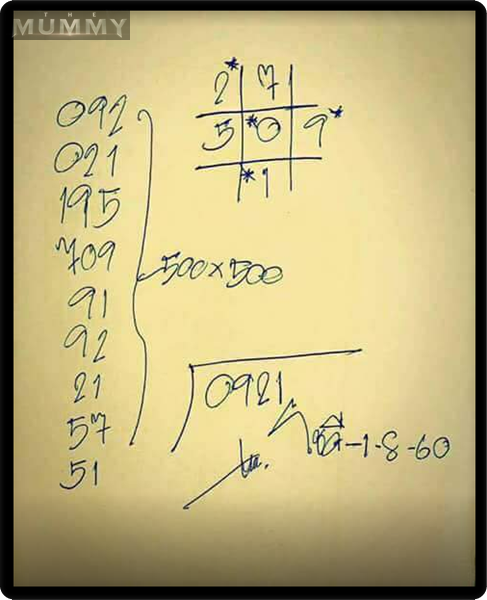 THE
MUMMY
2* 7
5 *0 9*
*1
092
021
195
709
91
92
21
57
51
500×500
0921
-1-8-60